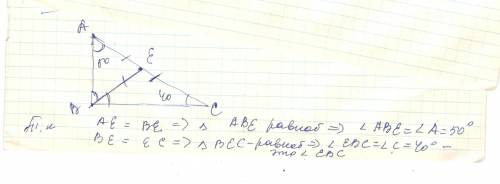 A
E
50
40
B
C
Т.к
AE = BE => △ ABE равноб => ∠ ABE = ∠A = 50°
BE = EC => △ BEC - равноб => ∠ EBC = ∠C = 40° -
это ∠ EBC